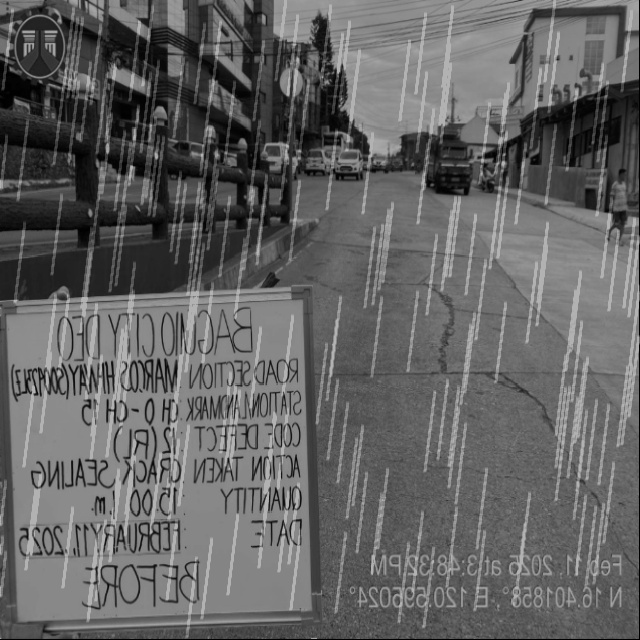 BAGUIO CITY DEO
ROAD SECTION : MARCOS HWAY
STATION/LANDMARK : CH 0 - CH 15
CODE DEFECT : 12 (RL)
ACTION TAKEN : CRACK SEALING
QUANTITY : 15.00 l.m.
DATE : FEBRUARY 11, 2025
BEFORE
Feb 11, 2025 at 3:48:32 PM
N 16.401858°, E 120.595024°